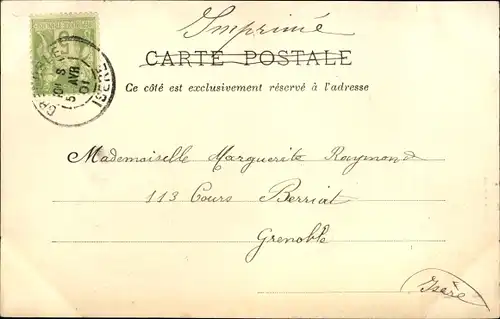 Imprimé
CARTE POSTALE
Ce côté est exclusivement réservé à l'adresse
GRENOBLE
5 AVR
01
ISERE
Mademoiselle Marguerite Raymond
113 Cours Berriat
Grenoble
Isère